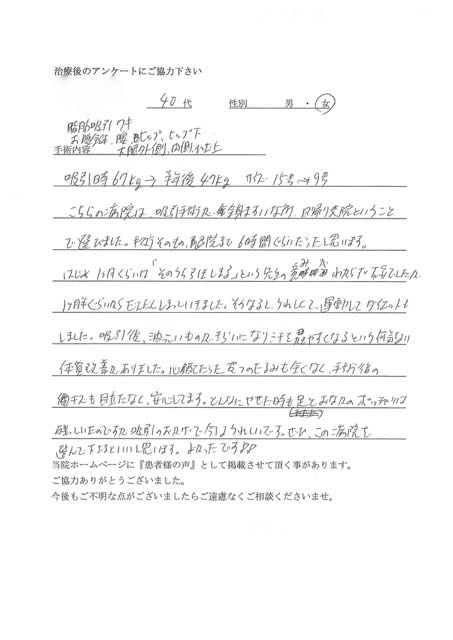 治療後のアンケートにご協力下さい
40代 性別 男 ・ 女
脂肪吸引 ワキ
お腹全体、腰、ヒップ、ヒップ下
手術内容 大腿外側、内側、ひざ上
吸引時67kg→半年後47kg サイズ 15号→9号
こちらの病院は、吸引手術 全身麻すい 、日帰り 院ということ
で選びました。手術そのもの、 院まで6時間ぐらいだったと思います。
はじめ1ヶ月くらいは「そのうち はしまる」という先生の意味がわからず不安でしたが
1ヶ月半ぐらいから しまっていきました。そうなると、うれしくて、運動して ダイエットも
しました。吸引後、油っこいものが きらいになり汗を やすくなるという
体質改善も ありました。心配だった 皮ふのたるみも全くなく、手術後の
傷キズも目立たなく、安心してます。どんなにやせた時も足とおなかのポッチャリは
残っていたのですが吸引のおかげで今はうれしいです。ぜひ、この病院を
選んで下さるといいと思います。よかったです
当院ホームページに『患者様の声』として掲載させて頂く事があります。
ご協力ありがとうございました。
今後もご不明な点がございましたらご遠慮なくご相談くださいませ。